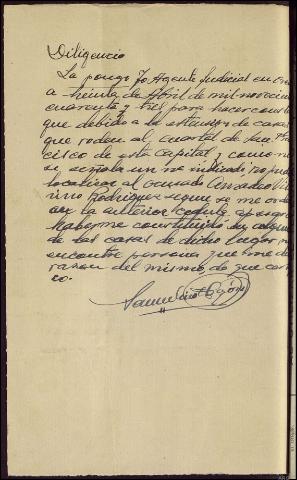 Diligencia
La pongo Yo Agente Judicial en
a treinta de Abril de mil novecien
cuarenta y tres para hacer const
que debido a la de casas
que rodean al cuartel de San Fran
cisco de esta Capital y como no
se señala un no indicado, no pude
localizar al Amadeo
Rodriguez segun se me orde
en la anterior cedula,
haberme constituido en algunas
de las casas de dicho lugar no
encontre persona que me diera
razon del mismo, de que cer
co.